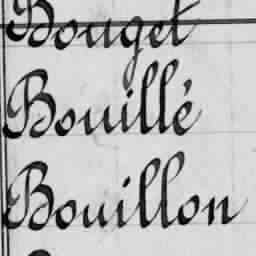 Bouget
Bouillé
Bouillon